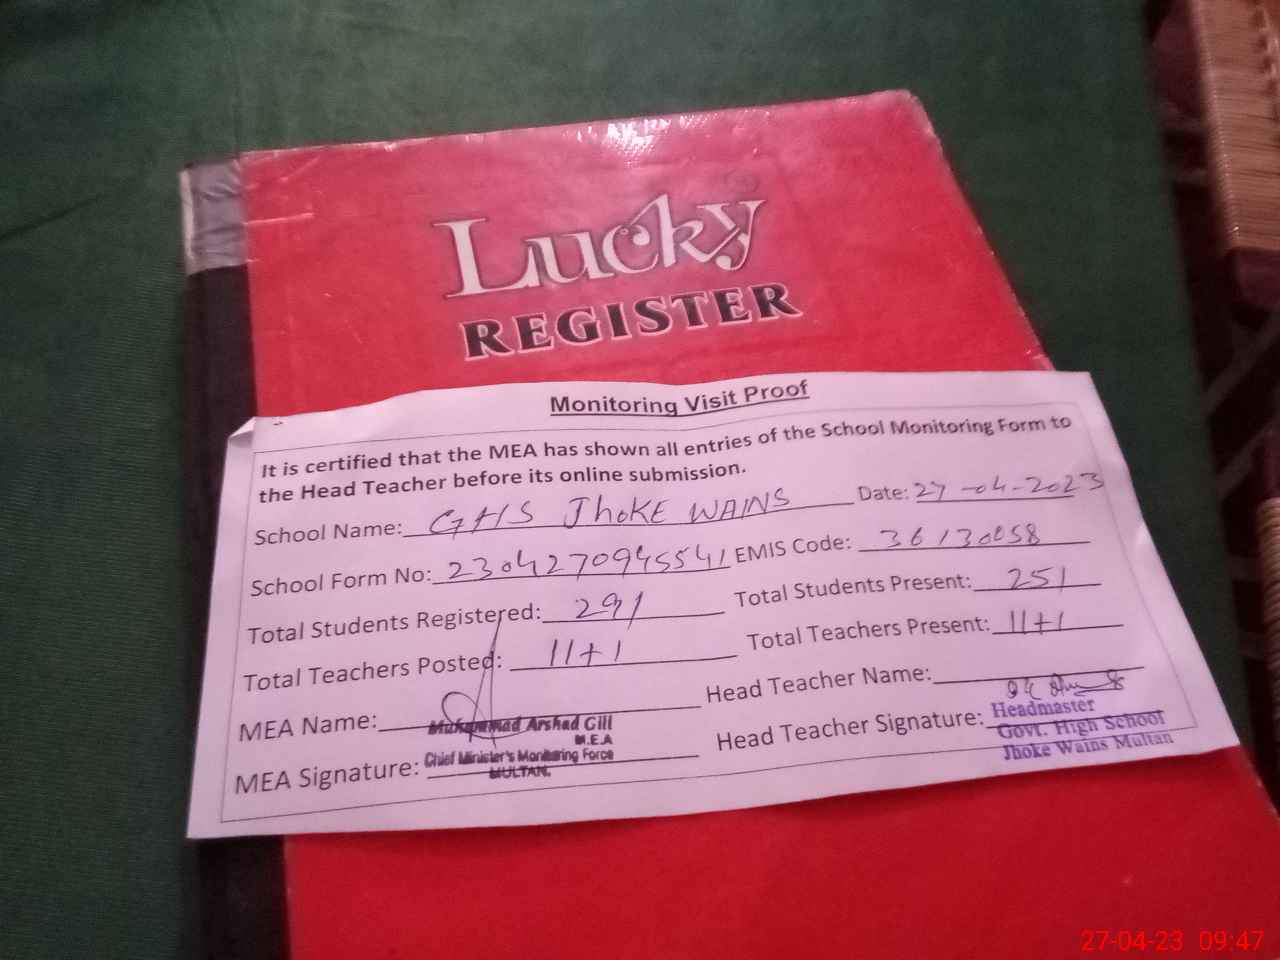 Lucky
REGISTER
Monitoring Visit Proof
It is certified that the MEA has shown all entries of the School Monitoring Form to
the Head Teacher before its online submission.
School Name: GHS JhOKE WAINS Date: 27-04-2023
School Form No: 2304270945541 EMIS Code: 36130058
Total Students Registered: 291 Total Students Present: 251
Total Teachers Posted: 11+1 Total Teachers Present: 11+1
MEA Name: Muhammad Arshad Gill Head Teacher Name:
M.E.A
MEA Signature: Chief Minister's Monitoring Force
MULTAN.
Head Teacher Signature: Headmaster
Govt. High School
Jhoke Wains Multan
27-04-23 09:47